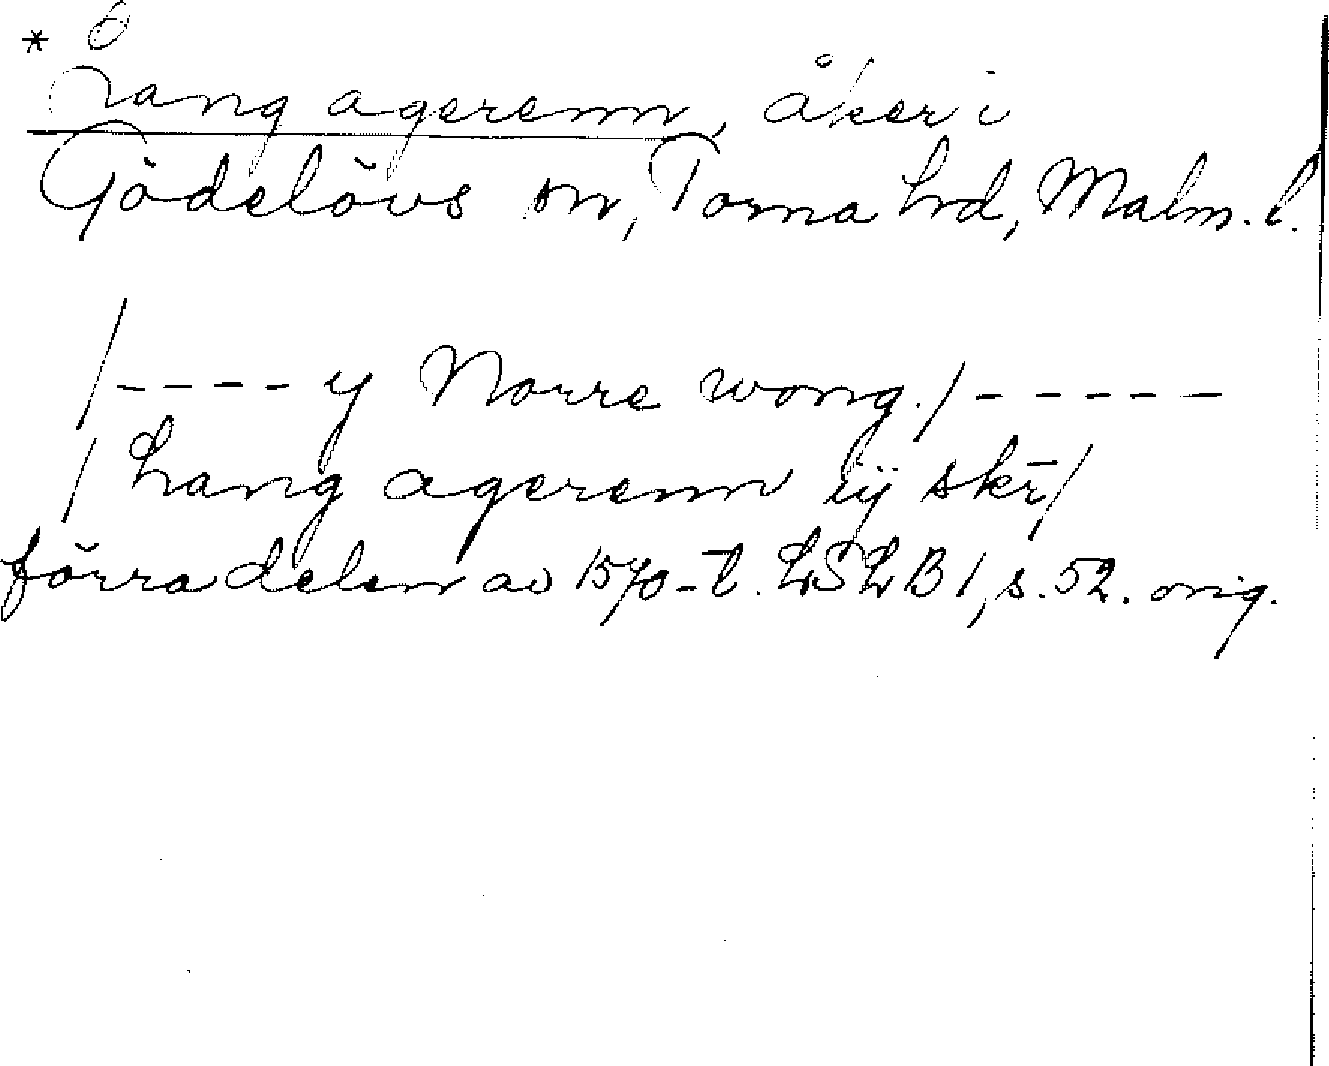 * Lang agerenn, åker i
Gödelövs sn, Torna hrd, Malm. l.
/---- y Norre wong./-----
/ Lang agerenn iij skr̄/
förra delen av 1570-t. LSLB 1, s. 52. orig.